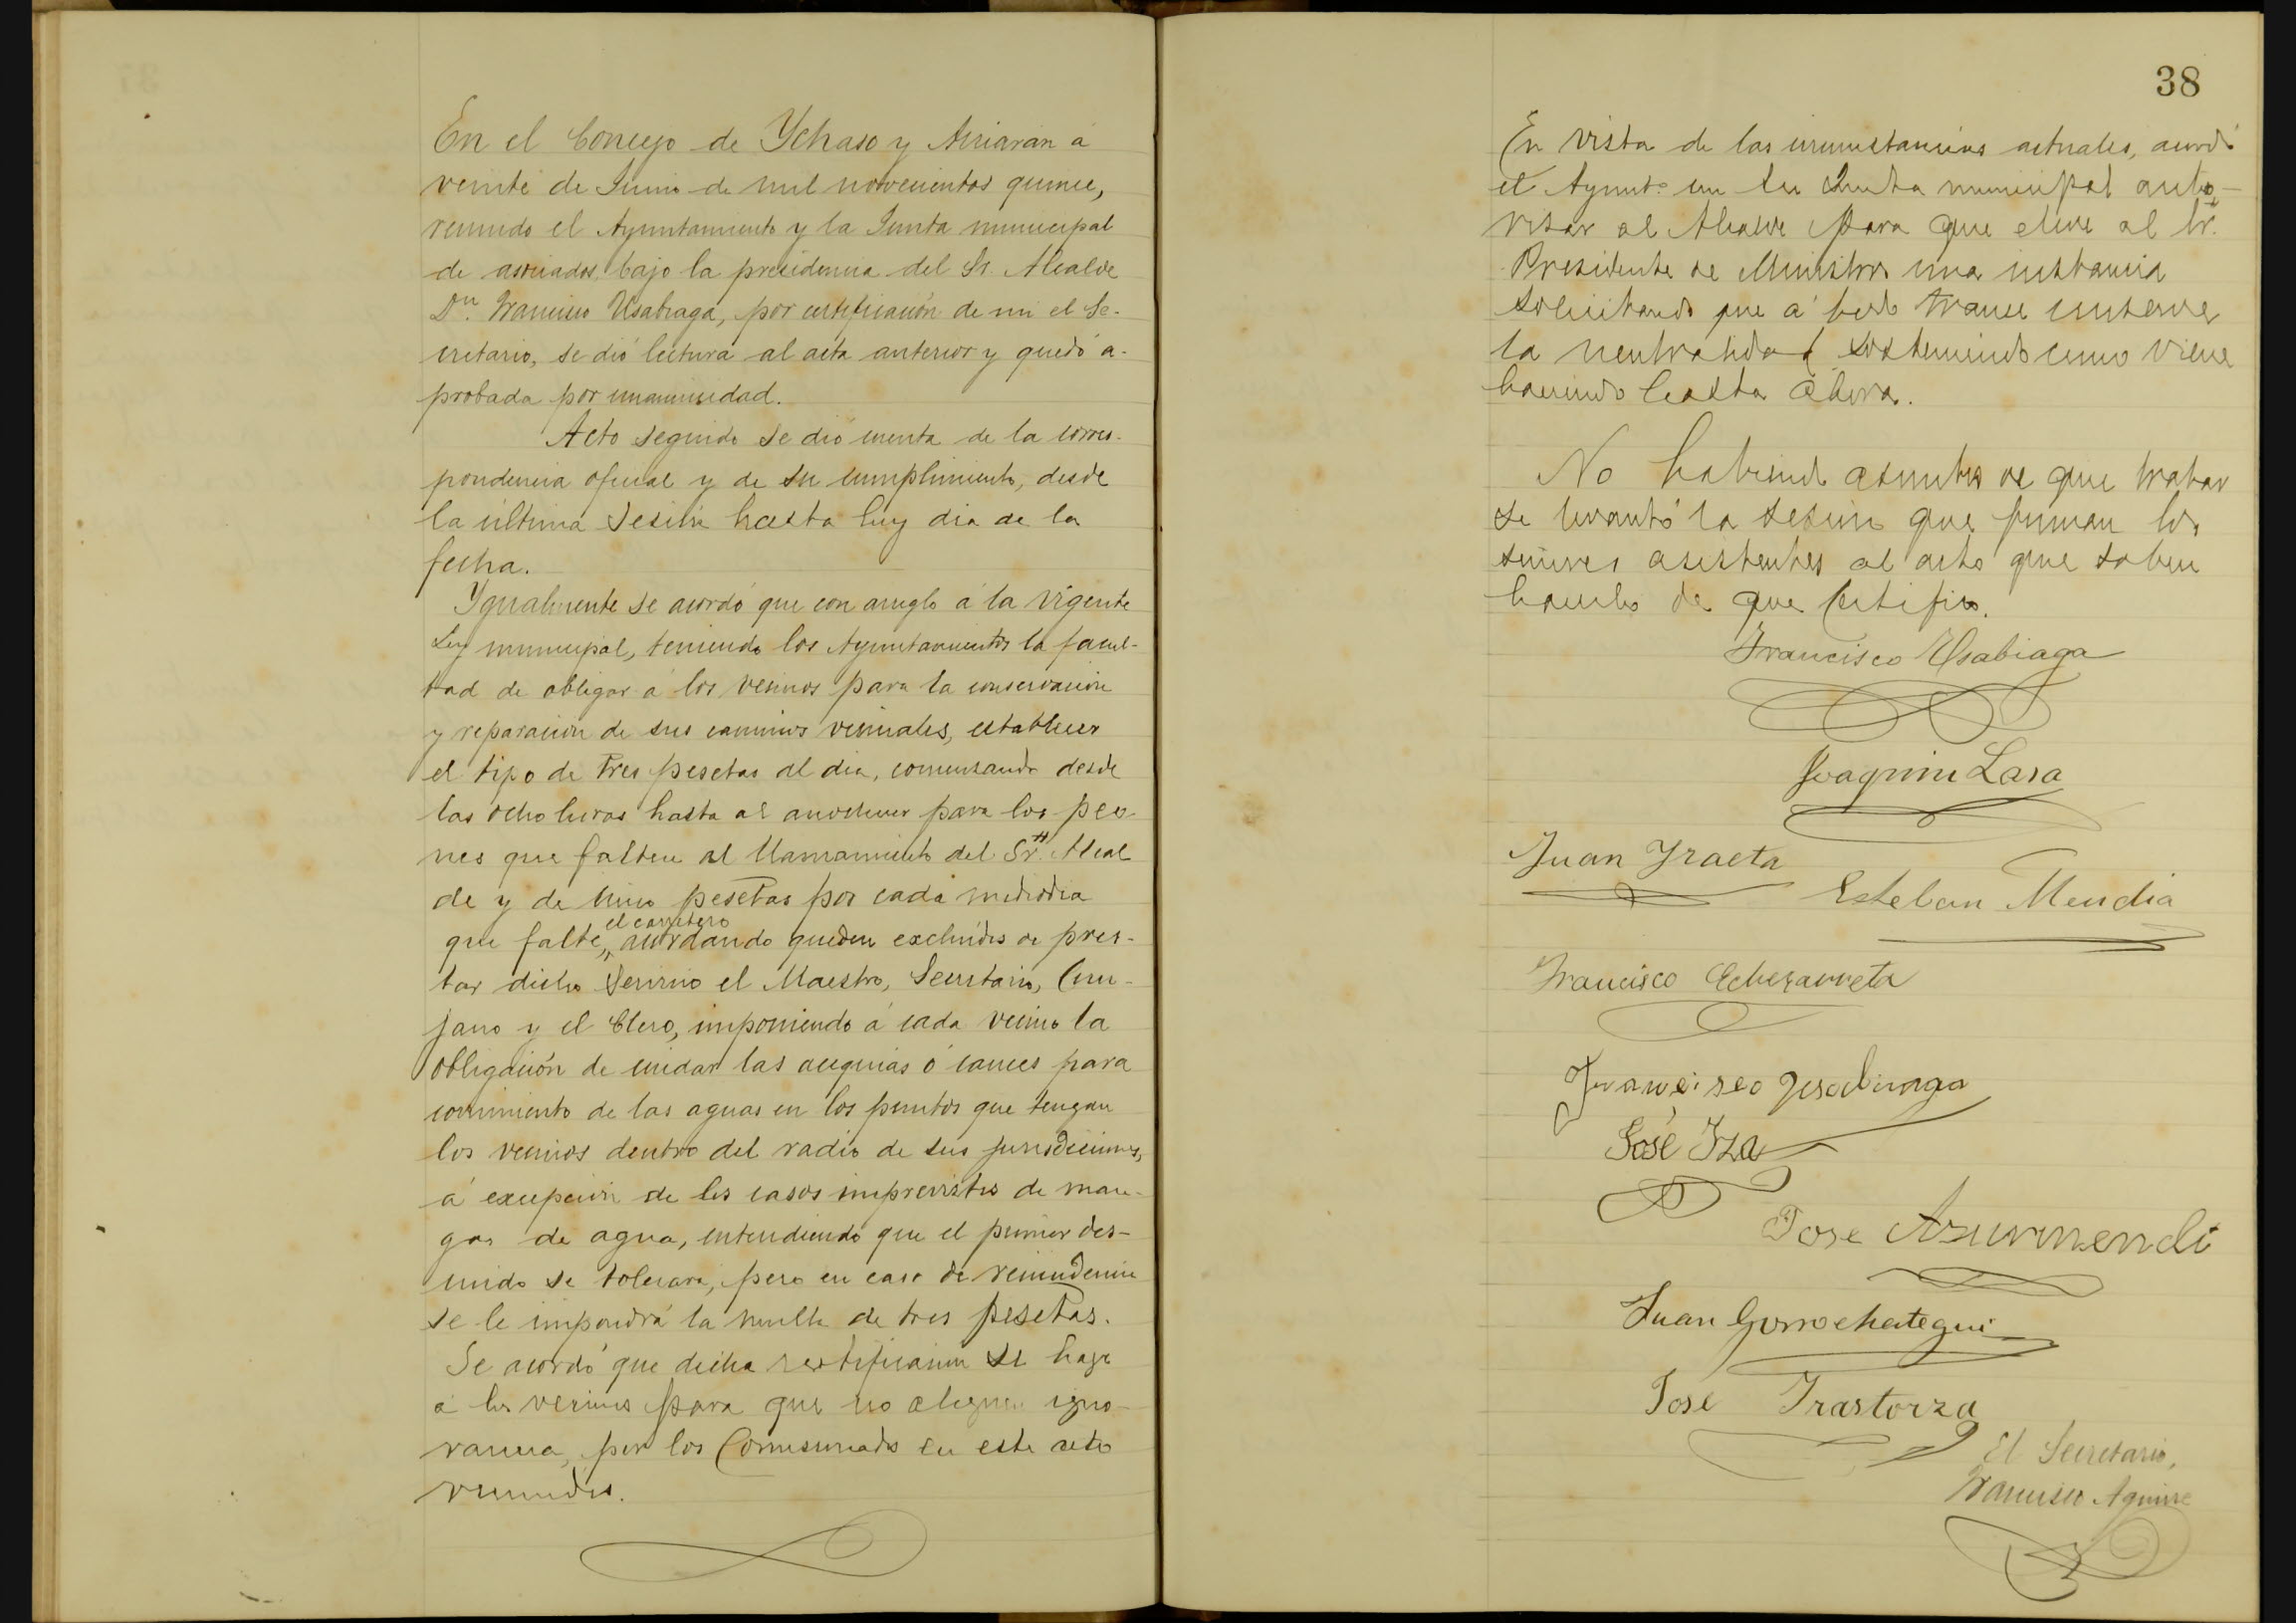 En el Concejo de Ychaso y Arriarán á
veinte de Junio de mil novecientos quince,
reunido el Ayuntamiento y la Junta municipal
de asociados, bajo la presidencia del Sr. Alcalde
Dn. Francisco Usabiaga, por certificación de mi el Se-
cretario, se dió lectura al acta anterior y quedó a-
probada por unanimidad.
Acto seguido se dió cuenta de la corres-
pondencia oficial y de su cumplimiento, desde
la última sesión hasta hoy dia de la
fecha.
Ygualmente se acordó que con arreglo á la vigente
Ley municipal, teniendo los Ayuntamientos la facul-
tad de obligar á los vecinos para la conservación
y reparación de sus caminos vecinales, establecer
el tipo de tres pesetas al dia, comenzando desde
las ocho horas hasta al anochecer para los peo-
nes que falten al llamamiento del Sr. Alcal
de y de cinco pesetas por cada mediodia
que falte, el carretero acordando queden excluídos de pres-
tar dicho servicio el Maestro, Secretario, Ciru-
jano y el Clero, imponiendo á cada vecino la
obligación de cuidar las acequias ó cauces para
corrimiento de las aguas en los puntos que tengan
los vecinos dentro del radio de sus jurisdicciones,
á excepción de los casos imprevistos de man-
gas de agua, entendiendo que el primer des-
cuido se tolerará, pero en caso de reincidencia
se le impondrá la multa de tres pesetas.
Se acordó que dicha notificación se haga
á los vecinos para que no aleguen igno-
rancia, por los Comisionados en este acto
reunidos.
38
En vista de las circunstancias actuales, acordó
el Ayunto. con su Junta municipal auto-
rizar al Alcalde para que eleve al Sr.
Presidente de Ministros una instancia
solicitando que á todo trance conserve
la neutralidad sosteniendo como viene
haciendo hasta ahora.
No habiendo asuntos de que tratar
se levantó la sesión que firman los
señores asistentes al acto que saben
hacerlo de que certifico.
Francisco Usabiaga
Joaquin Lasa
Juan Yraeta
Esteban Mendia
Francisco Echezarreta
Francisco Usabiaga
José Yza
Jose Azurmendi
Juan Gorrochategui
José Irastorza
El Secretario,
Francisco Aguirre